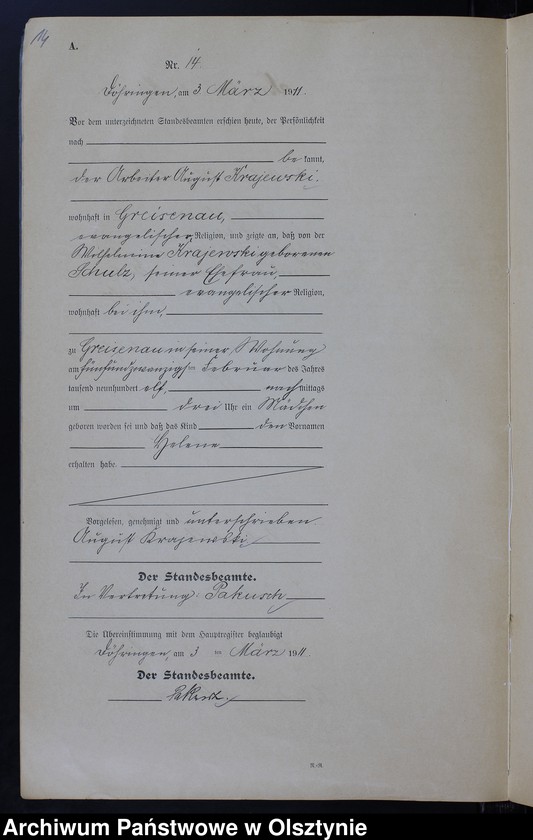 14
A.
Nr. 14.
Döhringen, am 3 März 1911.
Vor dem unterzeichneten Standesbeamten erschien heute, der Persönlichkeit
nach
be kannt,
der Arbeiter August Krajewski.
wohnhaft in Greisenau,
evangelischer Religion, und zeigte an, daß von der
Wilhelmine Krajewski geborenen
Schulz, seiner Ehefrau,
evangelischer Religion,
wohnhaft bei ihm,
zu Greisenau in seiner Wohnung
am fünfundzwanzigsten Februar des Jahres
tausend neunhundert elf, nach mittags
um drei Uhr ein Mädchen
geboren worden sei und daß das Kind den Vornamen
Helene
erhalten habe.
Vorgelesen, genehmigt und unterschrieben
August Krajewski
Der Standesbeamte.
In Vertretung. Pakusch
Die Übereinstimmung mit dem Hauptregister beglaubigt
Döhringen, am 3 ten März 1911.
Der Standesbeamte.
R-R
Archiwum Państwowe w Olsztynie